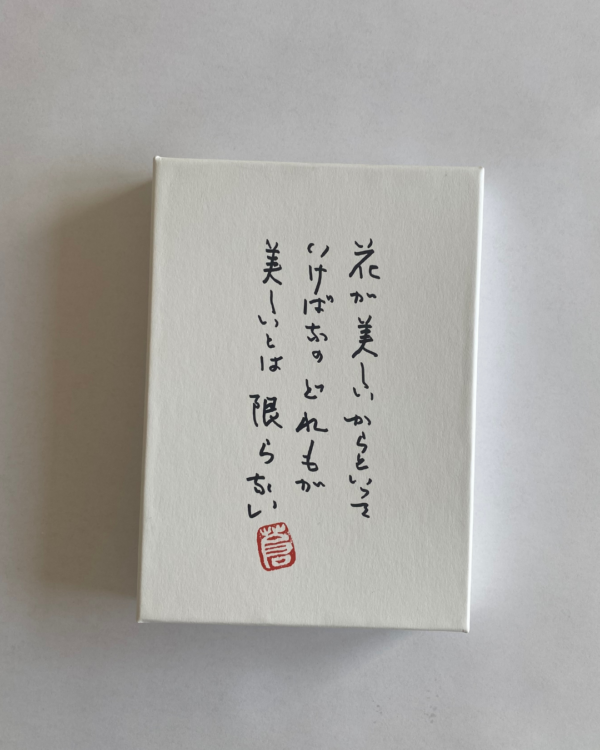 花が美しいからといって
いけばなのどれもが
美しいとは限らない
蒼